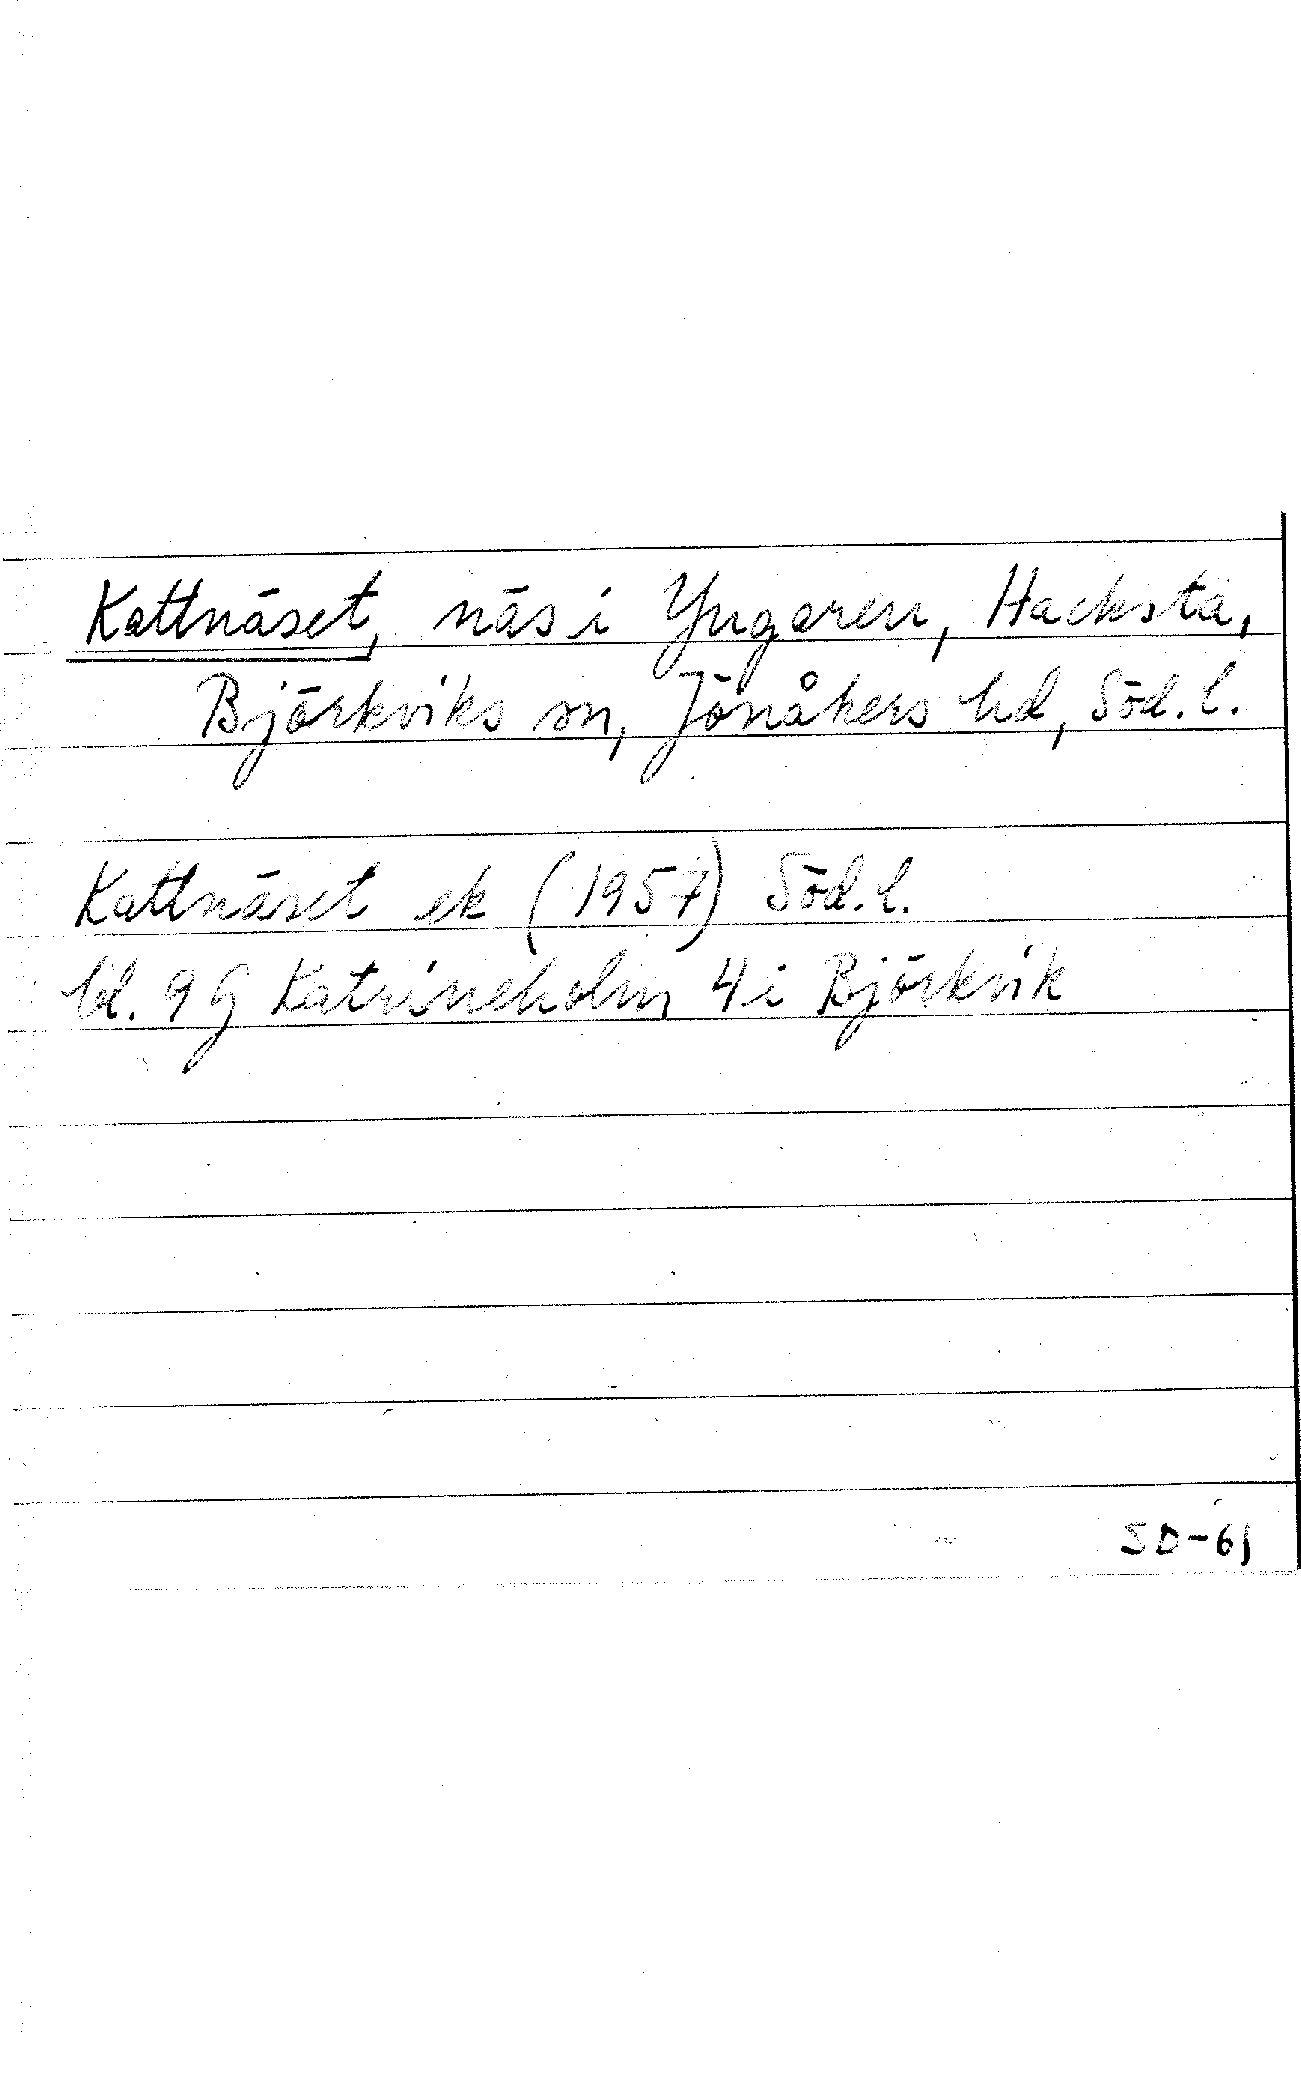 Kattnäset, näs i Yngaren, Hacksta,
Björkviks sn, Jönåkers hd, Söd. l.
Kattnäset ek (1957) Söd. l.
bl. 9 G Katrineholm 4 i Björkvik
SD-61